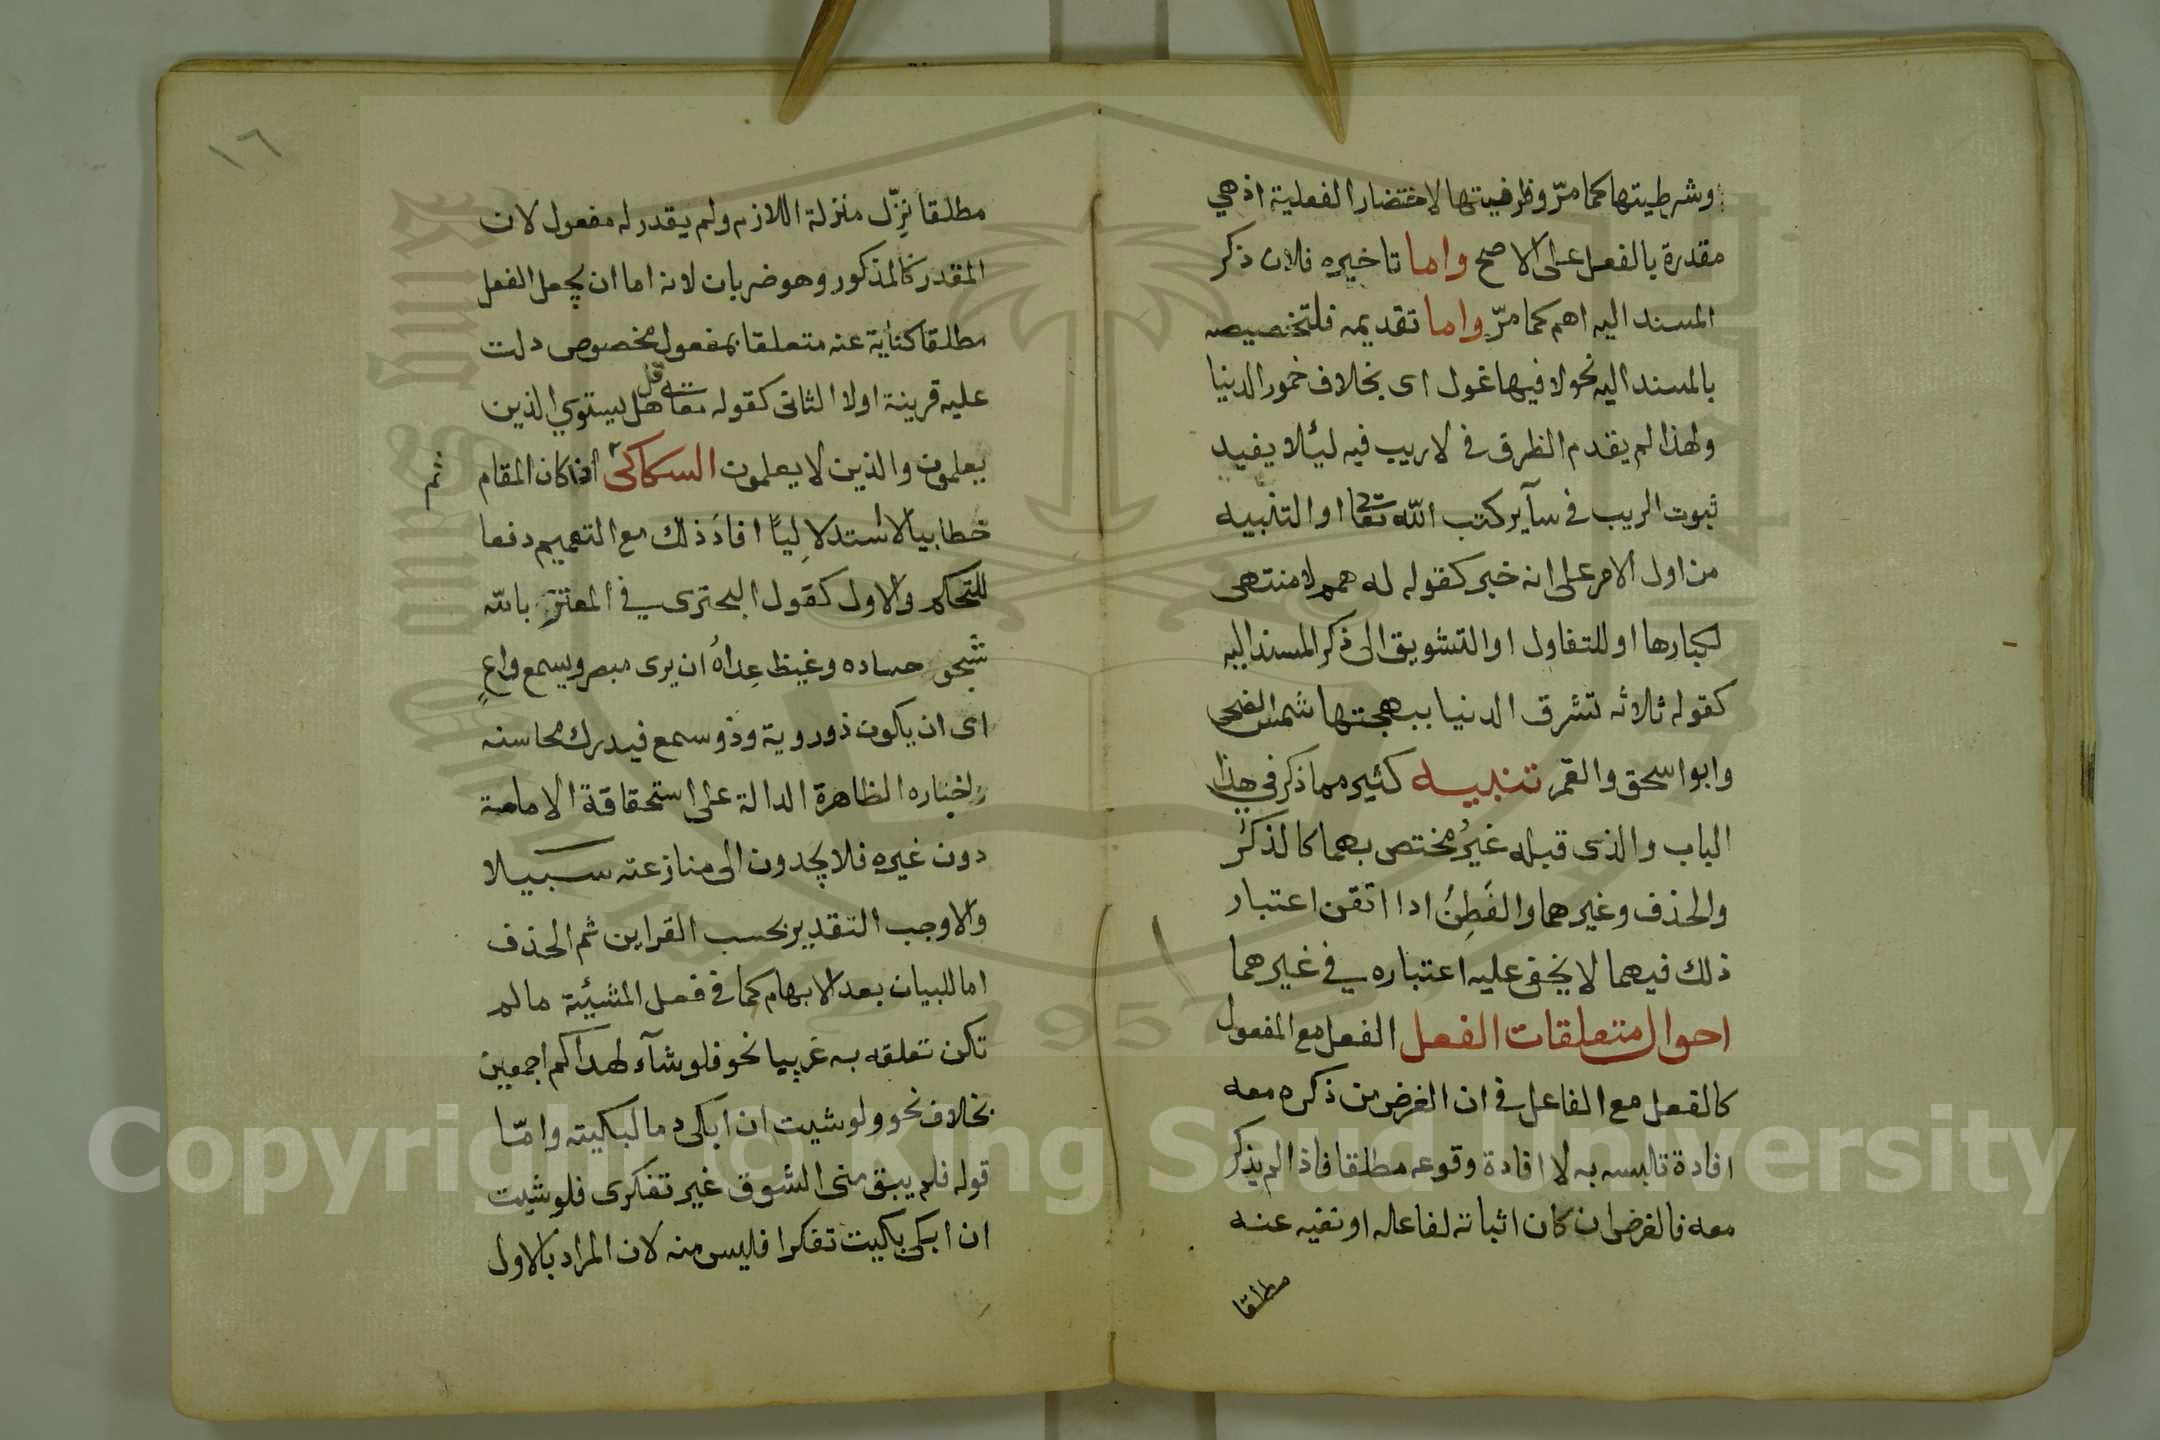 وشرطيتها كما مرّ وظرفيتها لاختضار الفعلية اذ هي
مقدرة بالفعل على الاصح واما تاخيره فلان ذكر
المسند اليه اهم كما مرّ واما تقديمه فلتخصيصه
بالمسند اليه نحو لا فيها غول اى بخلاف خمور الدنيا
ولهذا لم يقدم الظرف في لا ريب فيه لئلا يفيد
ثبوت الريب في سآير كتب الله تعالى او التنبيه
من اول الامر على انه خبر كقوله له همم لا منتهى
لكبارها او للتفاول او التشويق الى ذكر المسند اليه
كقوله ثلاثه تشرق الدنيا ببهجتها شمس الضحى
وابو اسحق والقمر تنبيه كثير مما ذكر في هذا
الباب والذى قبله غيرُ مختص بهما كالذكر
والحذف وغيرهما والفَطِنُ اذا اتقن اعتبار
ذلك فيهما لا يخفى عليه اعتباره في غيرهما
احوال متعلقات الفعل الفعل مع المفعول
كالفعل مع الفاعل في ان الغرض من ذكره معه
افادة تلبسه به لا افادة وقوعه مطلقا فاذا لم يذكر
معه فالغرض ان كان اثباته لفاعله او نفيه عنه
مطلقا
١٦
مطلقا نزّل منزلة اللازم ولم يقدر له مفعول لان
المقدر كالمذكور وهو ضربان لانه اما ان يجعل الفعل
مطلقا كناية عنه متعلقا بمفعول مخصوص دلت
عليه قرينة اولا الثانى كقوله تعالى قل هل يستوي الذين
يعلمون والذين لا يعلمون السكاكىّ اذا كان المقام
ثم
خطابيا لا استدلاليًا افادَ ذلك مع التعميم دفعا
للتحكم والاول كقول البحترى في المعتز بالله
شجو حساده وغيظ عِداهُ ان يرى مبصر ويسمع واعٍ
اى ان يكون ذو روية وذو سمع فيدرك محاسنه
واخباره الظاهرة الدالة على استحقاقة الامامة
دون غيره فلا يجدون الى منازعته سبيلا
والا وجب التقدير بحسب القراين ثم الحذف
اما للبيان بعد الابهام كما في فعل المشئة ما لم
تكن تعلقه به غريبا نحو فلو شآء لهداكم اجمعين
بخلاف نحو ولو شيت ان ابكى دما لبكيته وامّا
قوله فلم يبق منى الشوق غير تفكرى فلو شيت
ان ابكى بكيت تفكرا فليس منه لان المراد بالاول
Copyright © King Saud University
1957